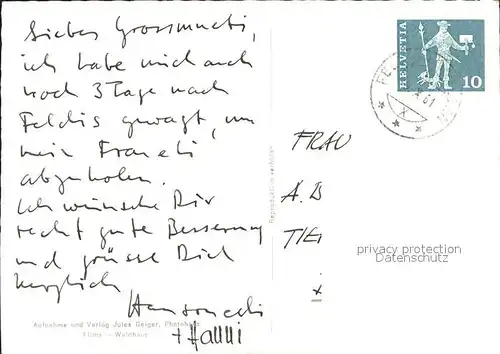 Liebes Grossmueti,
ich habe mich auch
noch 3 Tage nach
Feldis gewagt, um
mein Franeli
abzuholen.
Ich wünsche Dir
recht gute Besserung
und grüsse Dich
herzlich
+ Hanni
Aufnahme und Verlag Jules Geiger, Photohaus
Flims - Waldhaus
Reproduktion verboten
HELVETIA
10
61
X
FRAU
A. B
TIE
privacy protection
Datenschutz